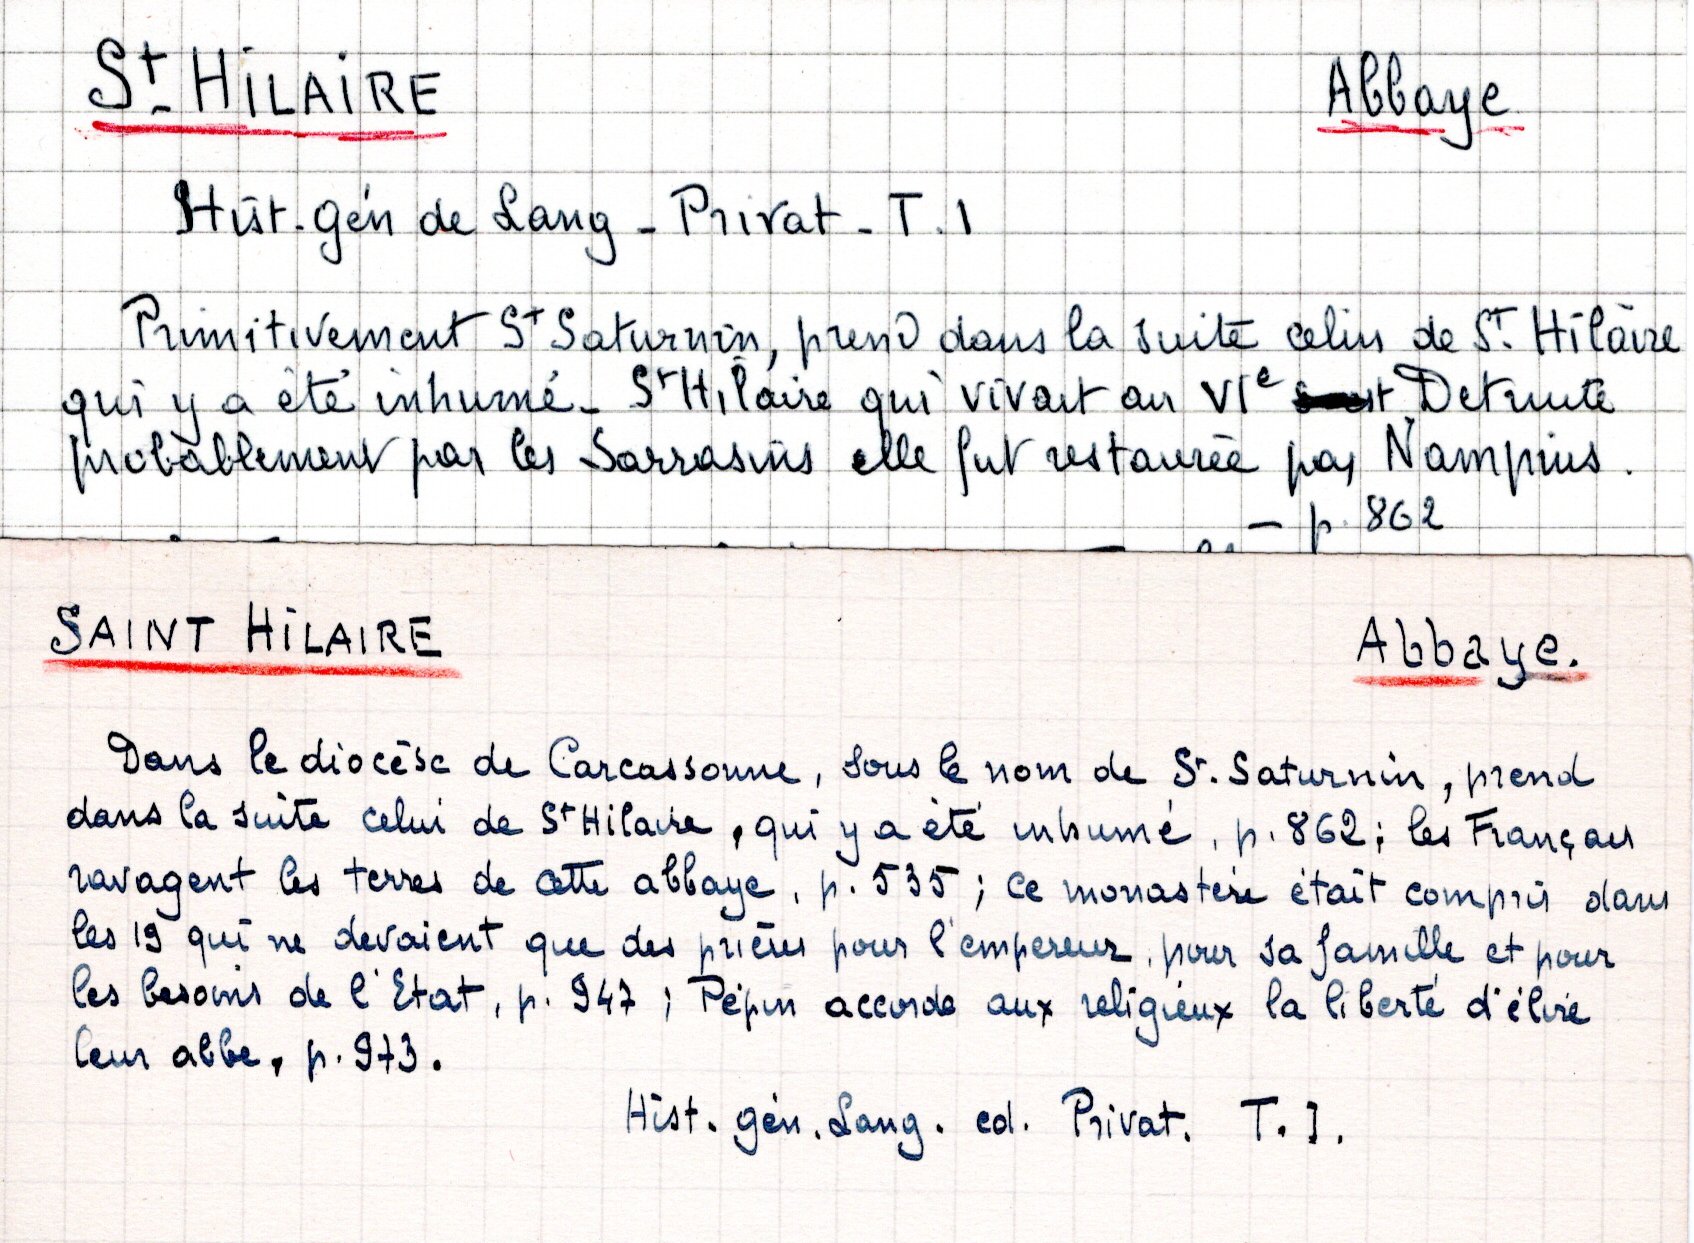 St HILAIRE Abbaye
Hist. gén de Lang - Privat - T. 1
Primitivement St Saturnin, prend dans la suite celui de St Hilaire
qui y a été inhumé - St Hilaire qui vivait au VIe Detruite
probablement par les Sarrasins elle fut restaurée par Nampius.
- p. 862
SAINT HILAIRE Abbaye.
Dans le diocèse de Carcassonne, sous le nom de St. Saturnin, prend
dans la suite celui de St Hilaire, qui y a été inhumé, p. 862; les Français
ravagent les terres de cette abbaye, p. 535; ce monastère était compris dans
les 19 qui ne devaient que des prières pour l'empereur, pour sa famille et pour
les besoins de l'Etat, p. 947; Pépin accorde aux religieux la liberté d'élire
leur abbe, p. 973.
Hist. gén. Lang. ed. Privat. T. I.